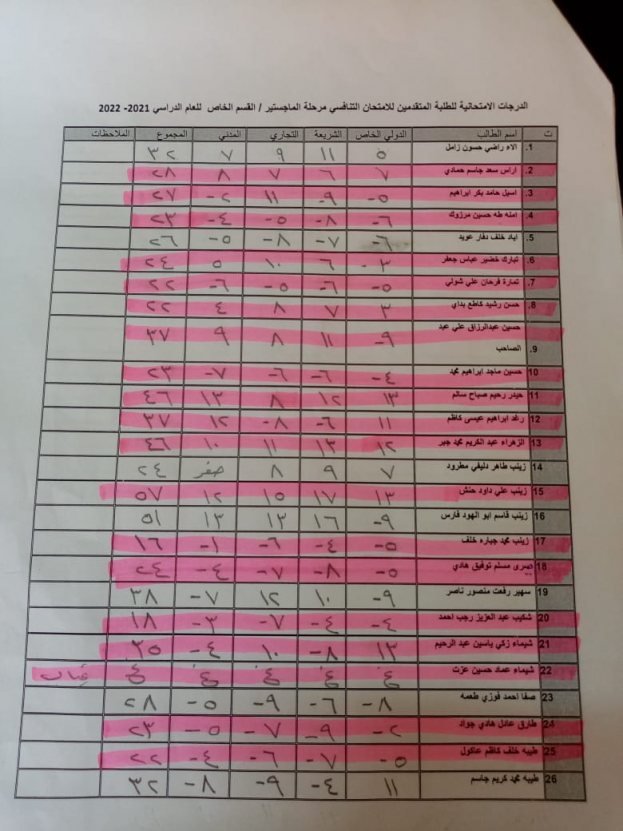 الدرجات الامتحانية للطلبة المتقدمين للامتحان التنافسي مرحلة الماجستير / القسم الخاص للعام الدراسي 2021- 2022
ت اسم الطالب الدولي الخاص الشريعة التجاري المدني المجموع الملاحظات
1. الاء راضي حسون زامل ٥ ١١ ٩ ٧ ٣٢
2. اراس سعد جاسم حمادي ٧ ٦ ٧ ٨ ٢٨
3. اسيل حامد بكر ابراهيم ٥- ٩- ١١ ٢- ٢٧
4. امنه طه حسين مرزوك ٦- ٨- ٥- ٤- ٢٣
5. اياد خلف دفار عويد ٦- ٧- ٨- ٥- ٢٦
6. تبارك خضير عباس جعفر ٣- ٦ ١٠ ٥ ٢٤
7. تمارة فرحان علي شولي ٥- ٦- ٥- ٦- ٢٢
8. حسن رشيد كاطع بداي ٣ ٧ ٨ ٤ ٢٢
حسين عبدالرزاق علي عبد ٩- ١١ ٨ ٩ ٣٧
9. الصاحب
10 حسين ماجد ابراهيم محمد ٤- ٦- ٦- ٧- ٢٣
11 حيدر رحيم صباح سالم ١٣ ١٢ ٨ ١٣ ٤٦
12 رغد ابراهيم عيسى كاظم ١١ ٦- ٨- ١٢ ٣٧
13 الزهراء عبد الكريم محمد جبر ١٢ ١٣ ١١ ١٠ ٤٦
14 زينب طاهر دليفي مطرود ٧ ٩ ٨ صفر ٢٤
15 زينب علي داود حنش ١٣ ١٧ ١٥ ١٢ ٥٧
16 زينب قاسم ابو الهود فارس ٩- ١٦ ١٣ ١٣ ٥١
17 زينب محمد جباره خلف ٥- ٤- ٦- ١- ١٦
18 سرى مسلم توفيق هادي ٥- ٨- ٧- ٤- ٢٤
19 سهير رفعت منصور ناصر ٩- ١٠ ١٢ ٧- ٣٨
20 شكيب عبد العزيز رجب احمد ٤- ٤- ٧- ٣- ١٨
21 شيماء زكي ياسين عبد الرحيم ١٣ ٨- ١٠ ٤- ٣٥
22 شيماء عماد حسين عزت غ غ غ غ غ غياب
23 صفا احمد فوزي طعمه ٨- ٦- ٩- ٥- ٢٨
24 طارق عادل هادي جواد ٢- ٩- ٧- ٥- ٢٣
25 طيبه خلف كاظم عاكول ٥- ٧- ٦- ٤- ٢٢
26 طيبه محمد كريم جاسم ١١ ٤- ٩- ٨- ٣٢